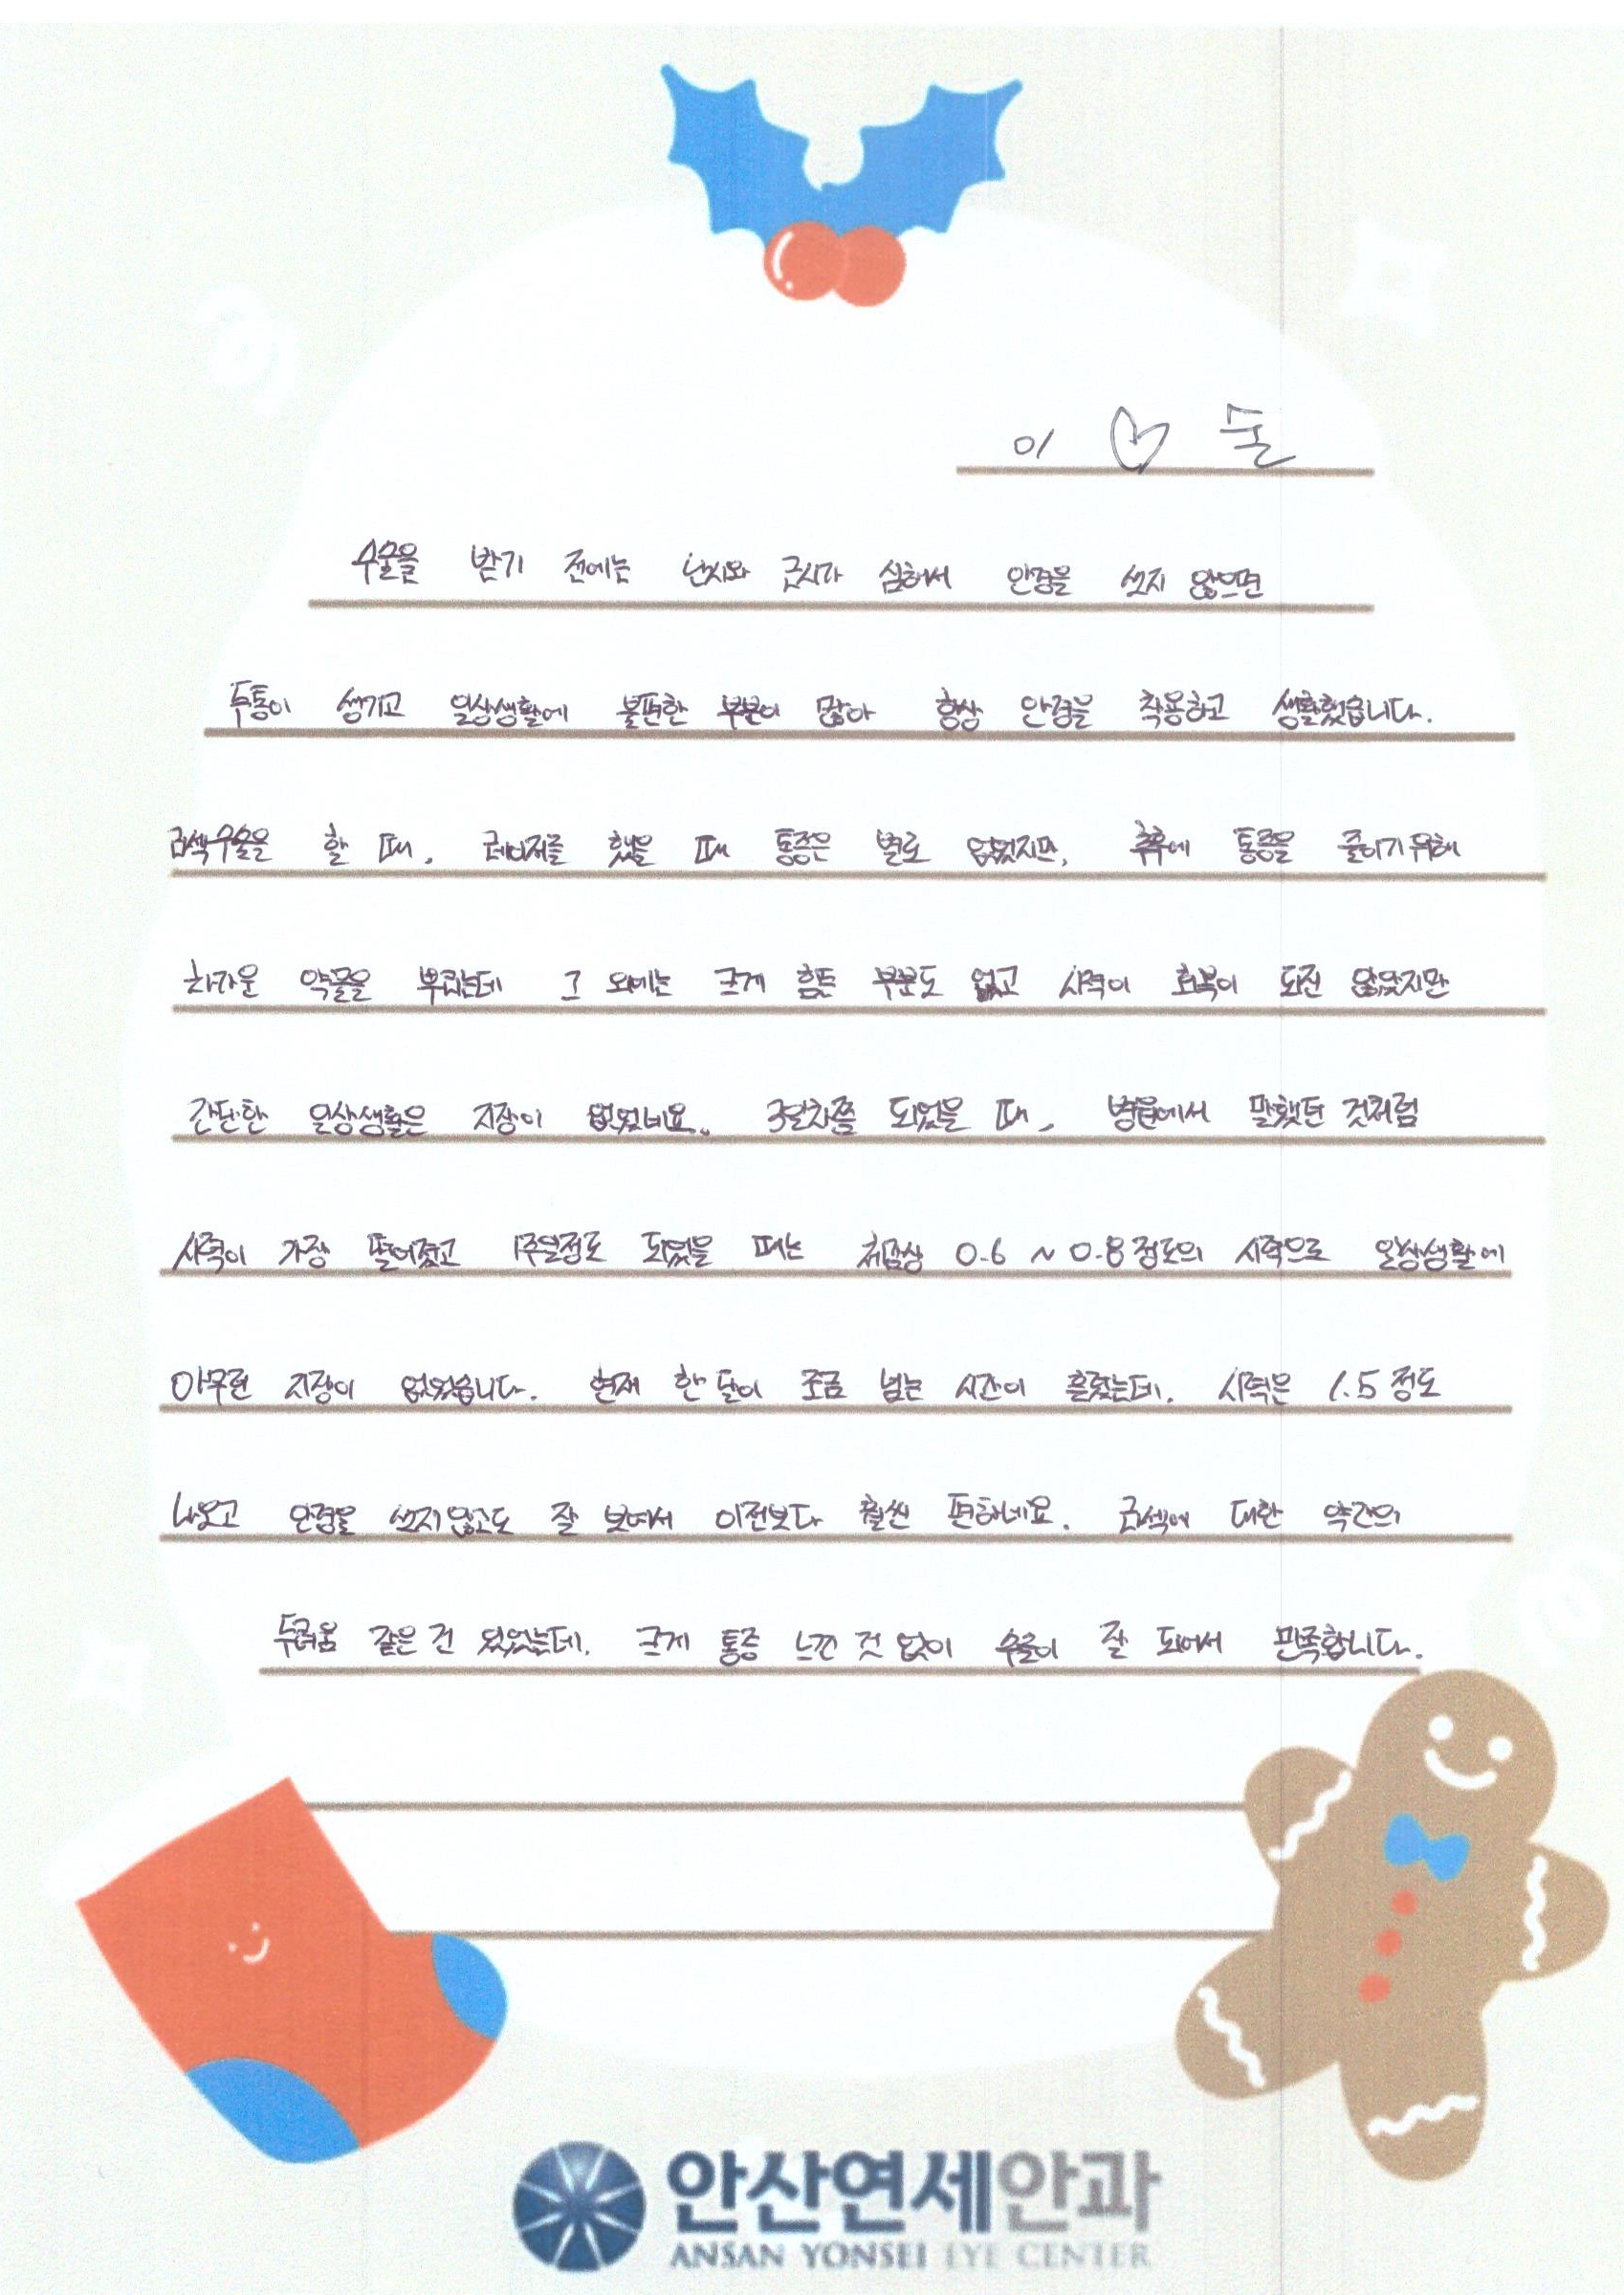 이 ♡ 준
수술을 받기 전에는 난시와 근시가 심해서 안경을 쓰지 않으면
두통이 생기고 일상생활에 불편한 부분이 많아 항상 안경을 착용하고 생활했습니다.
라섹수술을 할 때, 레이저를 했을 때 통증은 별로 없었지만, 추후에 통증을 줄이기위해
차가운 약물을 뿌렸는데 그 외에는 크게 힘든 부분도 없고 시력이 회복이 되진 않았지만
간단한 일상생활은 지장이 없었네요. 3일차쯤 되었을 때, 병원에서 말했던 것처럼
시력이 가장 떨어졌고 1주일정도 되었을 때는 체감상 0.6 ~ 0.8정도의 시력으로 일상생활에
아무런 지장이 없었습니다. 현재 한 달이 조금 넘는 시간이 흘렀는데, 시력은 1.5 정도
나오고 안경을 쓰지않고도 잘 보여서 이전보다 훨씬 편하네요. 라섹에 대한 약간의
두려움 같은 건 있었는데, 크게 통증 느낀 것 없이 수술이 잘 되어서 만족합니다.
안산연세안과
ANSAN YONSEI EYE CENTER